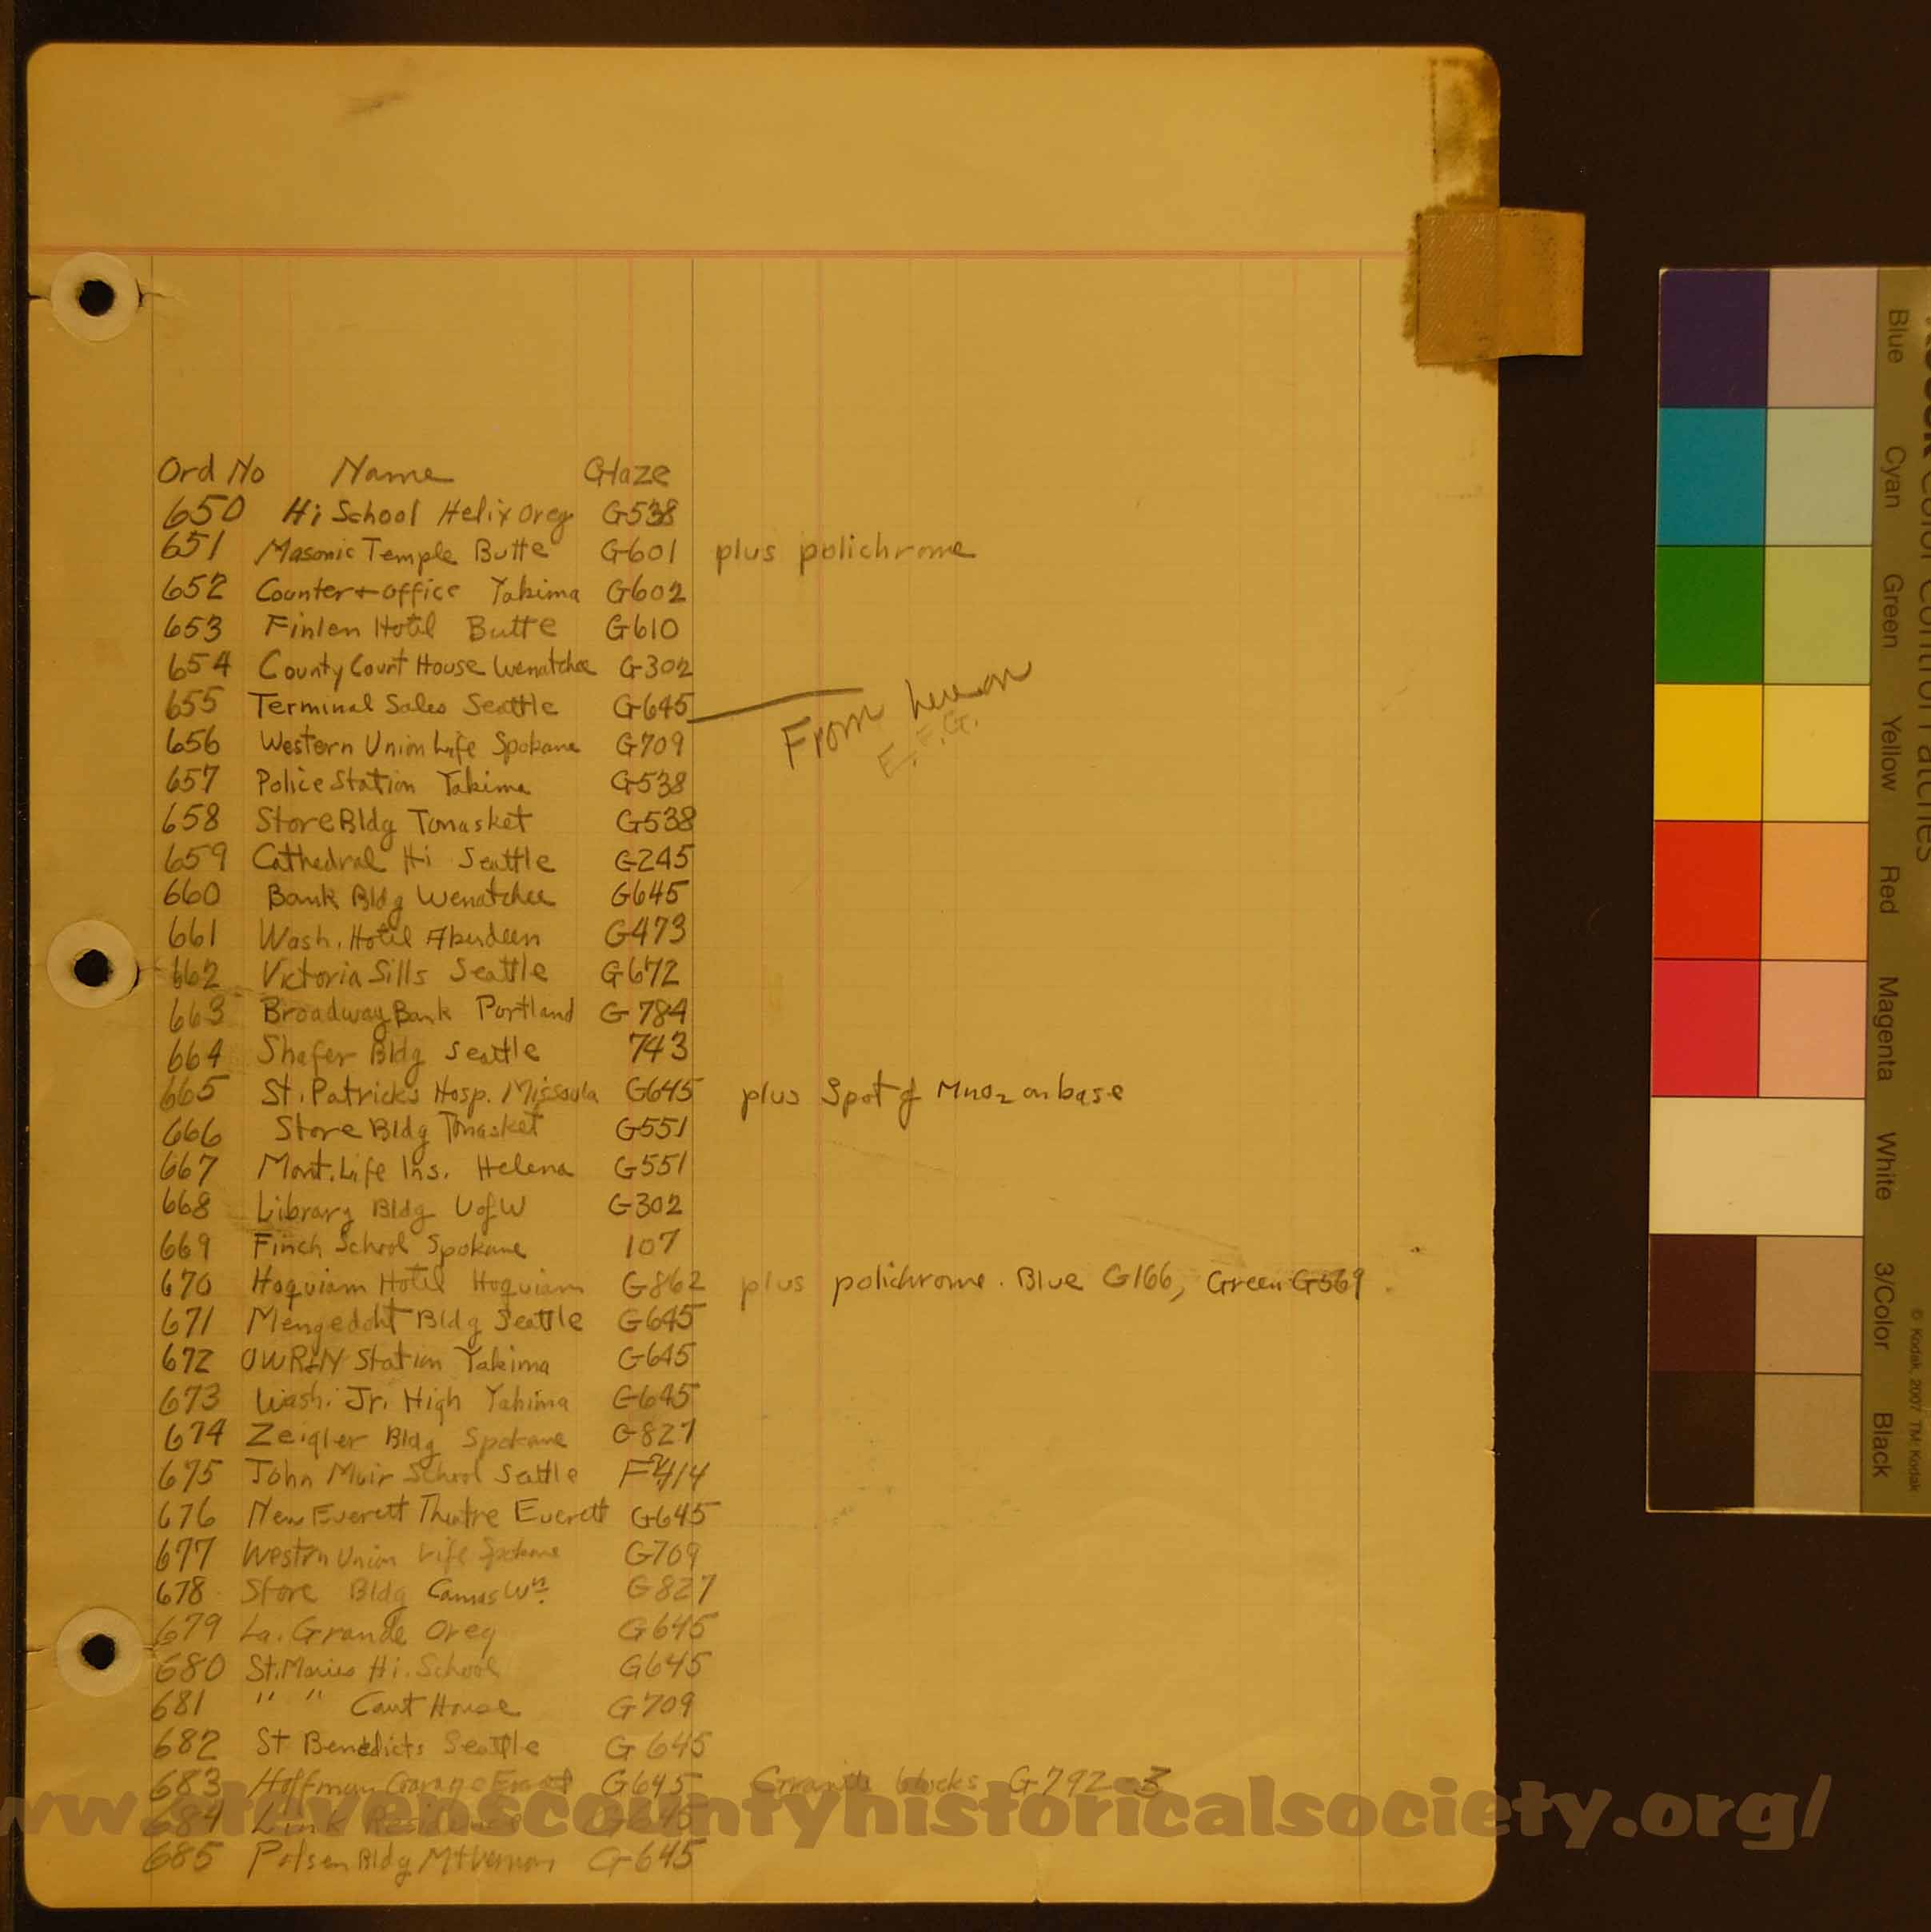 Ord No Name Glaze
650 Hi School Helix Oreg G538
651 Masonic Temple Butte G601 plus polichrome
652 Counter + office Yakima G602
653 Finlen Hotel Butte G610
654 County Court House Wenatchee G302
655 Terminal Sales Seattle G645
From here on
E.F.G.
656 Western Union Life Spokane G709
657 Police Station Yakima G538
658 Store Bldg Tonasket G538
659 Cathedral Hi Seattle G245
660 Bank Bldg Wenatchee G645
661 Wash. Hotel Aberdeen G473
662 Victoria Sills Seattle G672
663 Broadway Bank Portland G784
664 Shafer Bldg Seattle 743
665 St. Patricks Hosp. Missoula G645 plus Spot of MnO2 on base
666 Store Bldg Tonasket G551
667 Mont. Life Ins. Helena G551
668 Library Bldg U of W G302
669 Finch School Spokane 107
670 Hoquiam Hotel Hoquiam G862 plus polichrome. Blue G166, Green G569.
671 Mengedoht Bldg Seattle G645
672 OWR&N Station Yakima G645
673 Wash. Jr. High Yakima G645
674 Zeigler Bldg Spokane G827
675 John Muir School Seattle
676 New Everett Theatre Everett G645
677 Westrn Union Life Spokane G709
678 Store Bldg Camas Wn. G827
679 La. Grande Oreg G645
680 St. Maries Hi. School G645
681 " " Court House G709
682 St Benedicts Seattle G645
683 Hoffman Garage G645 Granite blocks G792-3
684 Link Residence G645
685 Polsen Bldg Mt Vernon G645
www.stevenscountyhistoricalsociety.org/
Blue Cyan Green Yellow Red Magenta White 3/Color Black
© Kodak, 2007 TM: Kodak